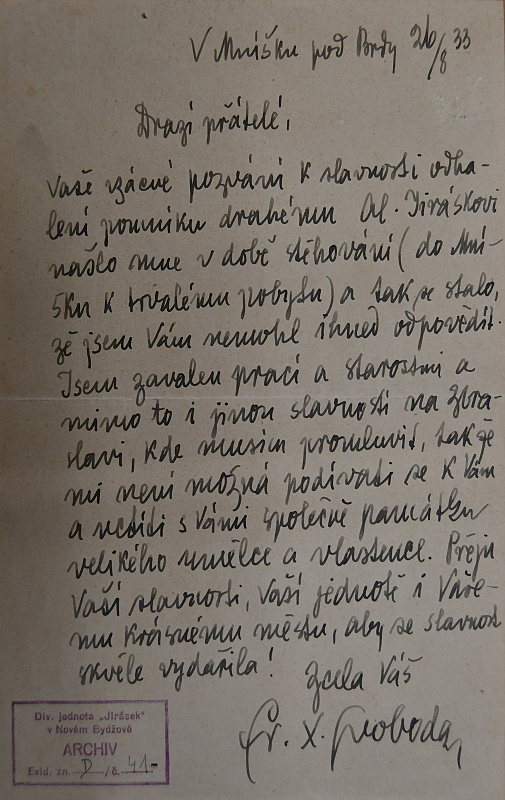 V Mníšku pod Brdy 26/8 33
Drazí přátelé,
Vaše vzácné pozvání k slavnosti odha-
lení pomníku drahému Al. Jiráskovi
našlo mne v době stěhování (do Mní-
šku k trvalému pobytu) a tak se stalo,
že jsem Vám nemohl ihned odpovědít.
Jsem zavalen prací a starostmi a
mimo to i jinou slavností na Zbra-
slavi, kde musím promluvit, takže
mi není možná podívati se k Vám
a uctíti s Vámi společně památku
velikého umělce a vlastence. Přeju
Vaší slavnosti, Vaší jednotě i Vaše-
mu krásnému městu, aby se slavnost
skvěle vydařila!
Zcela Váš
Fr. X. Svoboda,
Div. jednota „Jirásek"
v Novém Bydžově
ARCHIV
Evid. zn. D /č. 41-